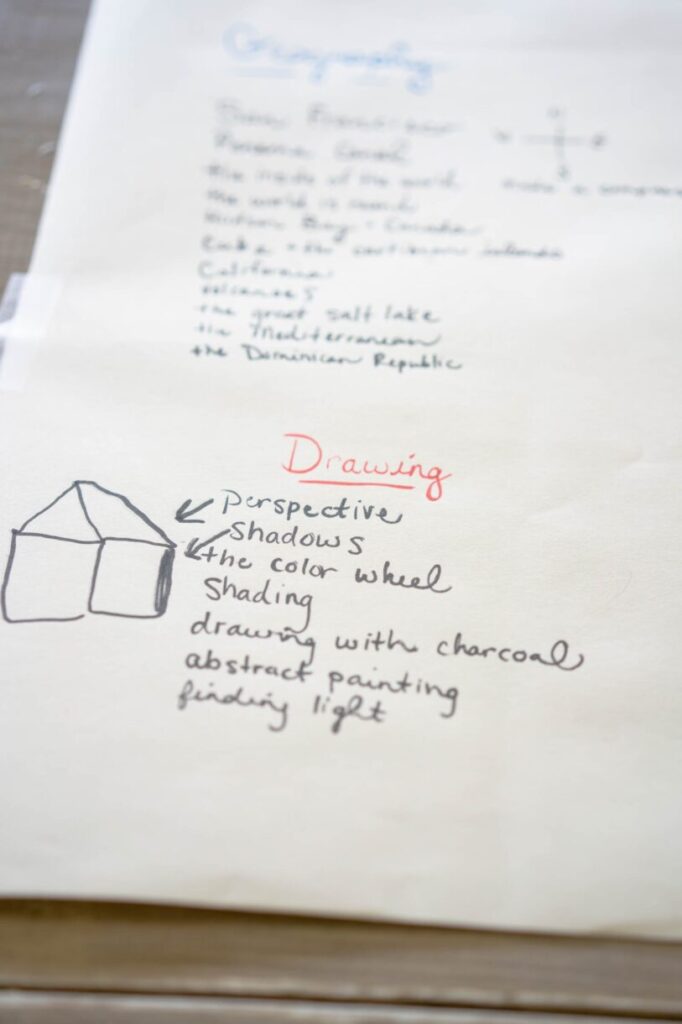 Geography
San Francisco
Panama Canal
the made of the world
the world is round
Hudson Bay - Canada
Cuba - the caribbean islands
California
volcanoes
the great salt lake
the Mediterranean
the Dominican Republic
Drawing
perspective
shadows
the color wheel
Shading
drawing with charcoal
abstract painting
finding light